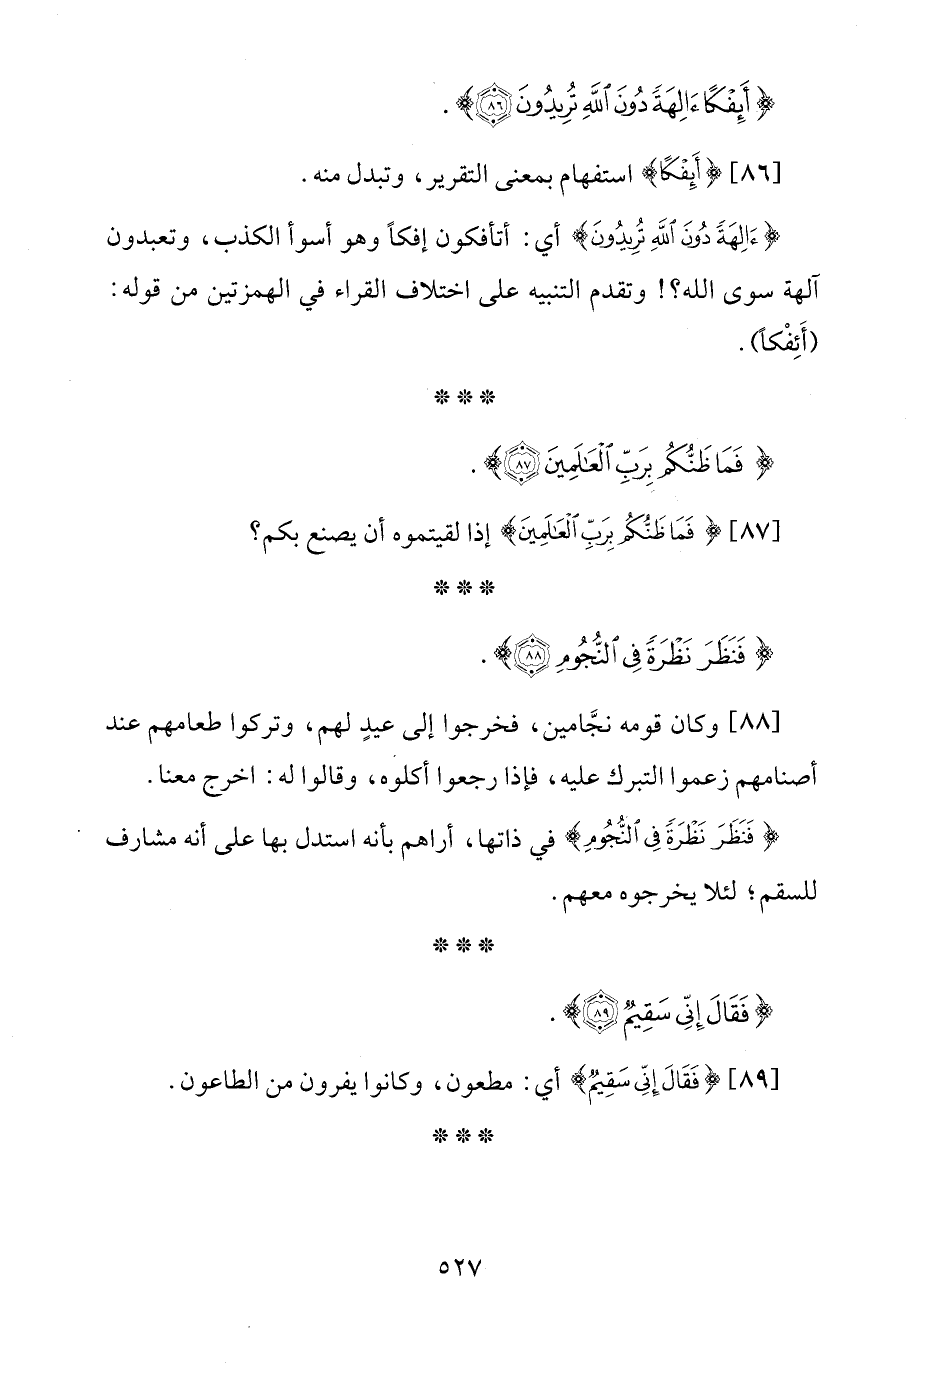 ﴿أَئِفْكًا ءَالِهَةً دُونَ ٱللَّهِ تُرِيدُونَ ٨٦﴾ .
[٨٦] ﴿أَئِفْكًا﴾ استفهام بمعنى التقرير، وتبدل منه .
﴿ءَالِهَةً دُونَ ٱللَّهِ تُرِيدُونَ﴾ أي: أتأفكون إفكاً وهو أسوأ الكذب، وتعبدون
آلهة سوى الله؟! وتقدم التنبيه على اختلاف القراء في الهمزتين من قوله:
(أَئِفْكاً) .
*** 
﴿فَمَا ظَنُّكُم بِرَبِّ ٱلْعَٰلَمِينَ ٨٧﴾ .
[٨٧] ﴿فَمَا ظَنُّكُم بِرَبِّ ٱلْعَٰلَمِينَ﴾ إذا لقيتموه أن يصنع بكم؟
***
﴿فَنَظَرَ نَظْرَةً فِي ٱلنُّجُومِ ٨٨﴾ .
[٨٨] وكان قومه نجَّامين، فخرجوا إلى عيدٍ لهم، وتركوا طعامهم عند
أصنامهم زعموا التبرك عليه، فإذا رجعوا أكلوه، وقالوا له: اخرج معنا .
﴿فَنَظَرَ نَظْرَةً فِي ٱلنُّجُومِ﴾ في ذاتها، أراهم بأنه استدل بها على أنه مشارف
للسقم؛ لئلا يخرجوه معهم .
***
﴿فَقَالَ إِنِّي سَقِيمٌ ٨٩﴾ .
[٨٩] ﴿فَقَالَ إِنِّي سَقِيمٌ﴾ أي: مطعون، وكانوا يفرون من الطاعون .
***
٥٢٧